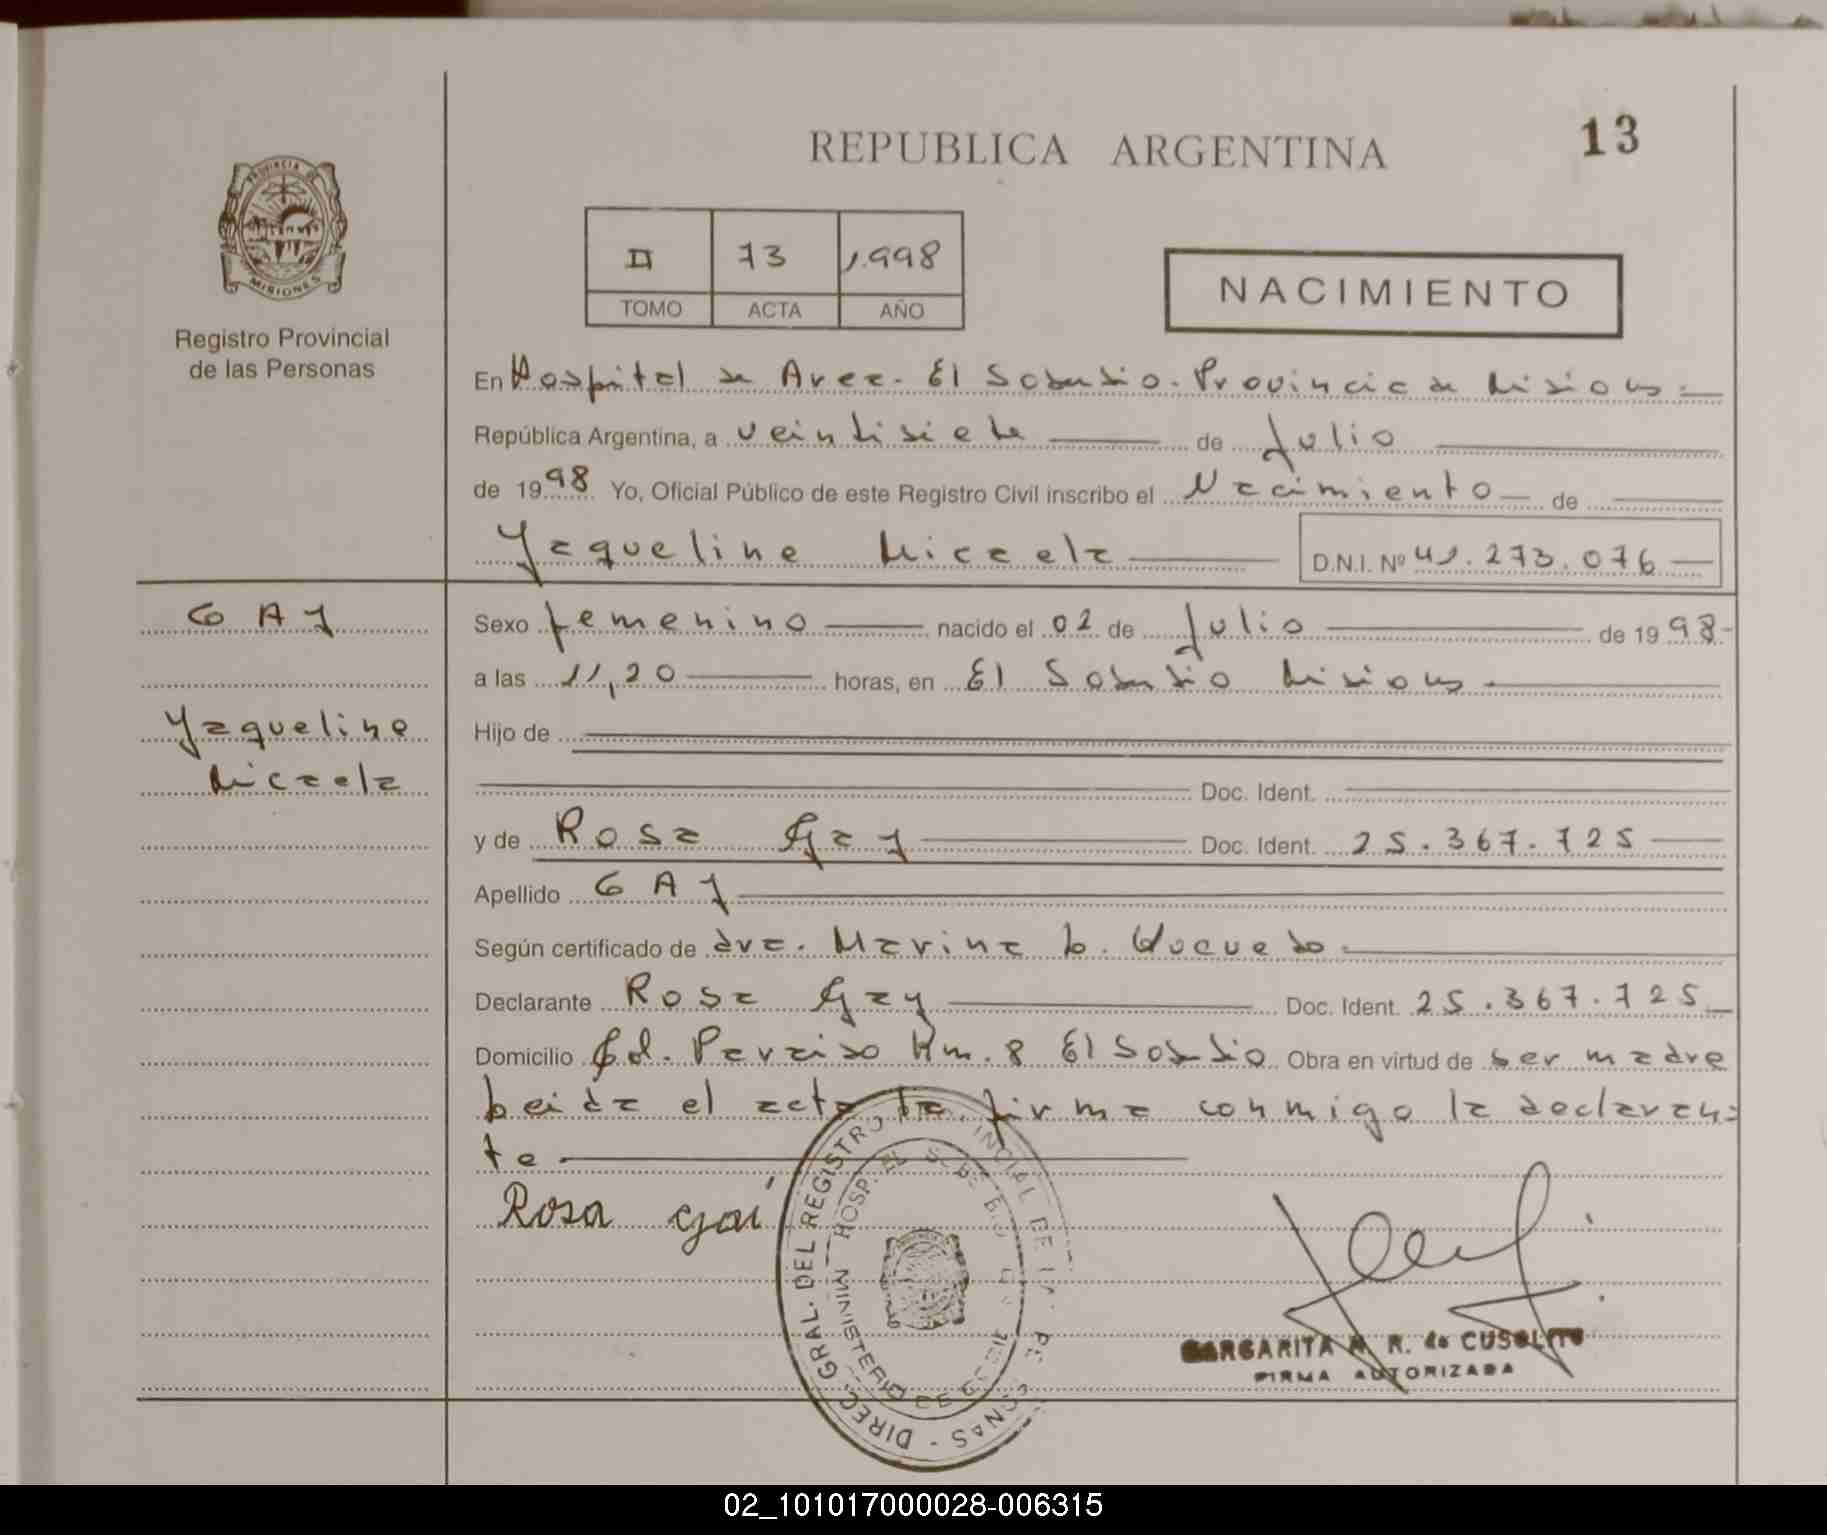 REPUBLICA ARGENTINA
13
PROVINCIA DE
MISIONES
Registro Provincial
de las Personas
II 73 1.998
TOMO ACTA AÑO
NACIMIENTO
En Hospital de Area. El Soberbio. Provincia de Misiones
República Argentina, a veintisiete de Julio
de 1998 Yo, Oficial Público de este Registro Civil inscribo el Nacimiento de
Yaqueline Micaela D.N.I. Nº 41.273.076
GAY Sexo femenino nacido el 02 de Julio de 1998
a las 11,20 horas, en El Soberbio Misiones
Yaqueline Hijo de
Micaela Doc. Ident.
y de Rosa Gay Doc. Ident. 25.367.725
Apellido GAY
Según certificado de dra. Marina
Declarante Rosa Gay Doc. Ident. 25.367.725
Domicilio Paraiso Km. 8 El Soberbio Obra en virtud de ser madre
Leida el acta la firma conmigo la declaran=
te
Rosa Gai
DIREC. GRAL. DEL REGISTRO PROVINCIAL DE LAS PERSONAS
HOSP. EL SOBERBIO
MINISTERIO DE
MARGARITA R. de CUSOLITO
FIRMA AUTORIZADA
02_101017000028-006315